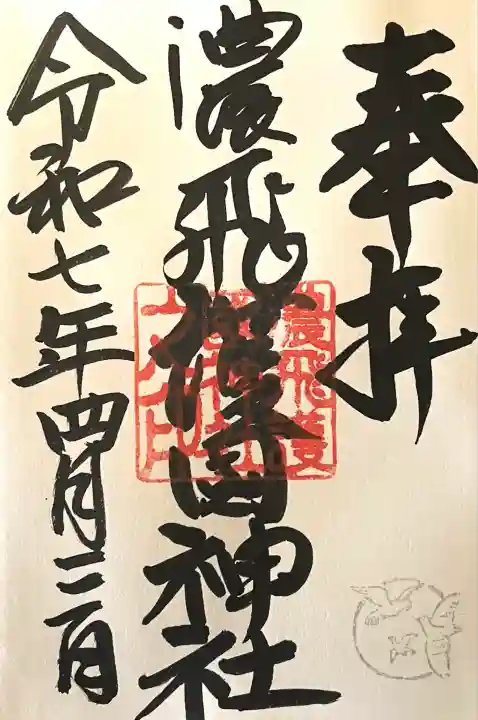 奉拝
濃飛護國神社
令和七年四月三日
濃飛護